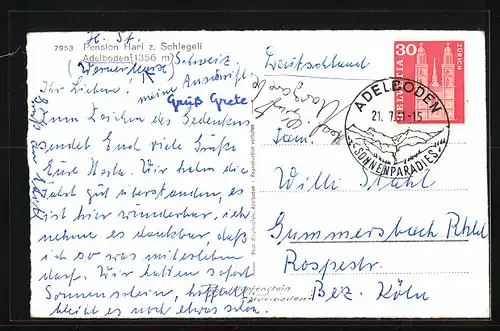 H. St.
7953 Pension Hari z. Schlegeli
Adelboden (1356 m)
(Berner Schweiz
meine Anschrift
Ihr Lieben!
Gruß Grete
Zum Zeichen des Gedenkens
sendet Euch viele Grüße
Eure Herta. Wir haben die
Fahrt gut überstanden, es
ist hier wunderbar, ich
nehme es dankbar, daß
ich so was miterleben
darf. Wir hatten sofort
Sonnenschein, hoffentlich
bleibt es noch etwas schön.
Deutschland
30
HELVETIA
ZÜRICH
ADELBODEN
21. 7. -15
SONNENPARADIES
Fam.
Willi Stahl
Gummersbach Rhld
Rospestr.
Bez. Köln